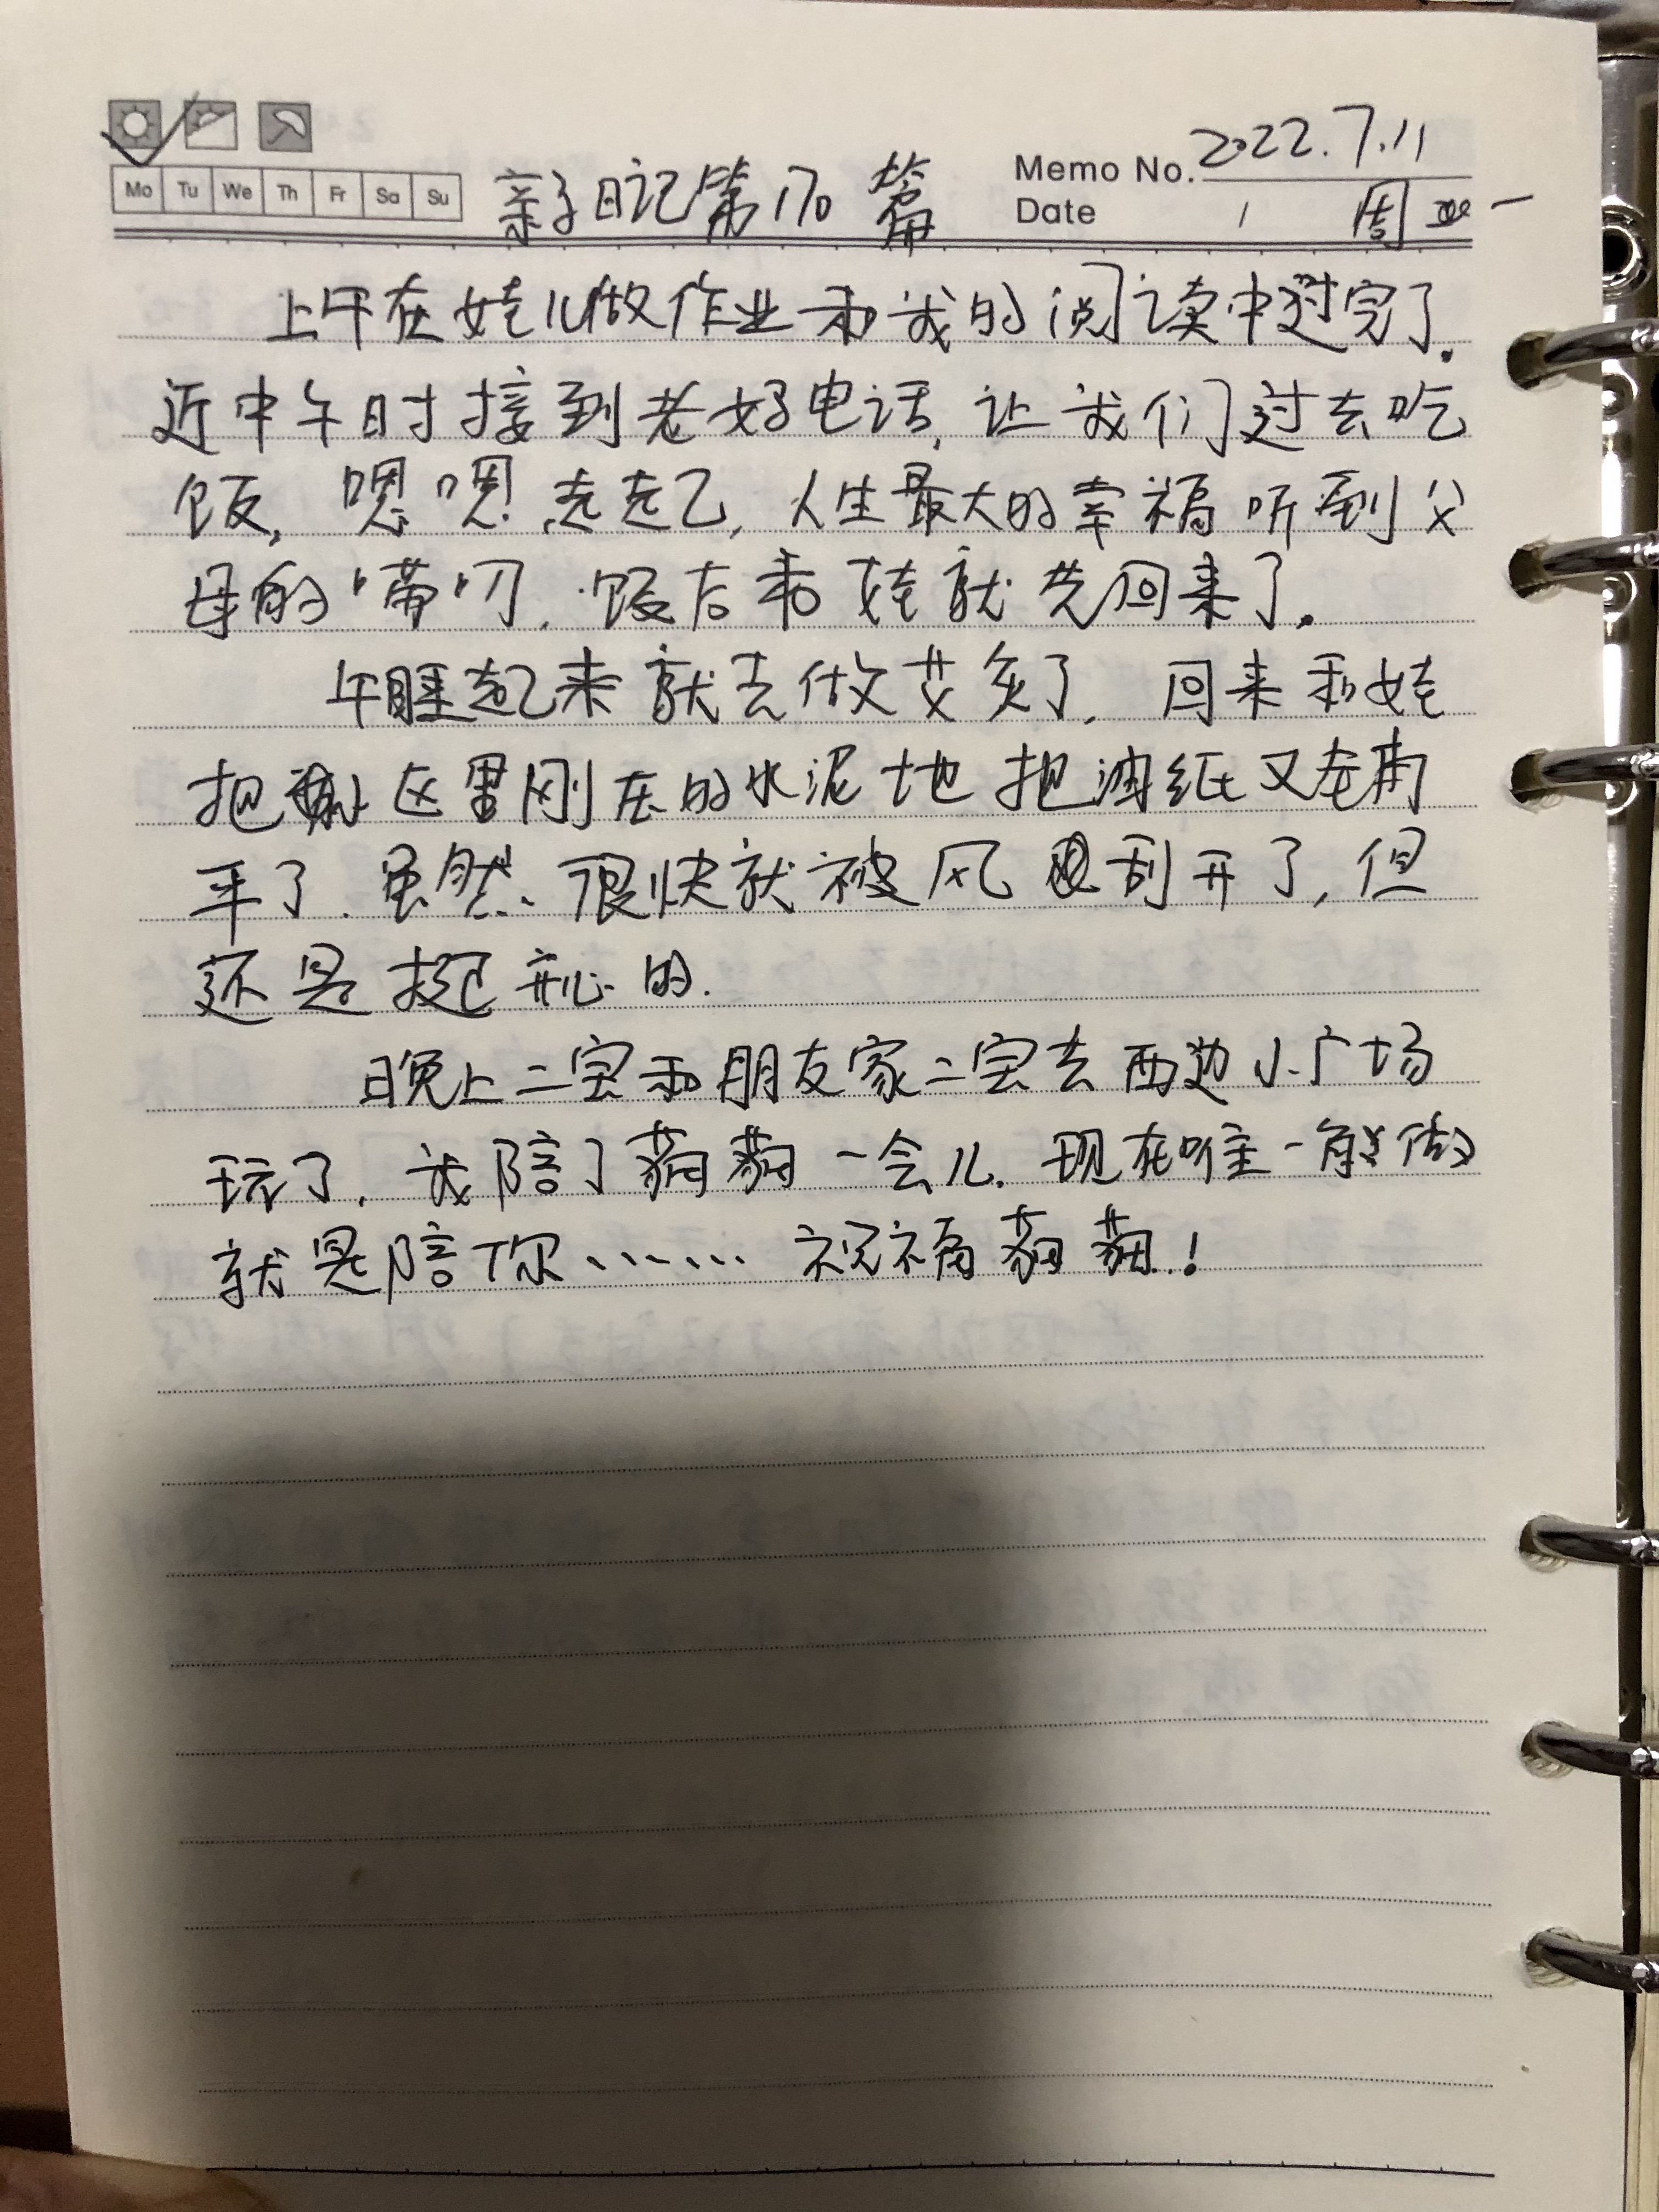 2022.7.11
Memo No.
Mo Tu We Th Fr Sa Su
亲子日记第170篇
Date 1 周一
上午在娃儿做作业和我的阅读中过完了.
近中午时接到老妈电话,让我们过去吃
饭,嗯嗯 走走起,人生最大的幸福听到父
母的唠叨.饭后和娃就先回来了.
午睡起来就去做艾灸了,回来和娃
把 区里刚压的水泥地把油纸又 
平了.虽然.很快就被风 刮开了,但
还是挺开心的.
晚上二宝和朋友家二宝去西边小广场
玩了,我陪了蒻蒻一会儿.现在唯一能做
就是陪你……祝福蒻蒻!